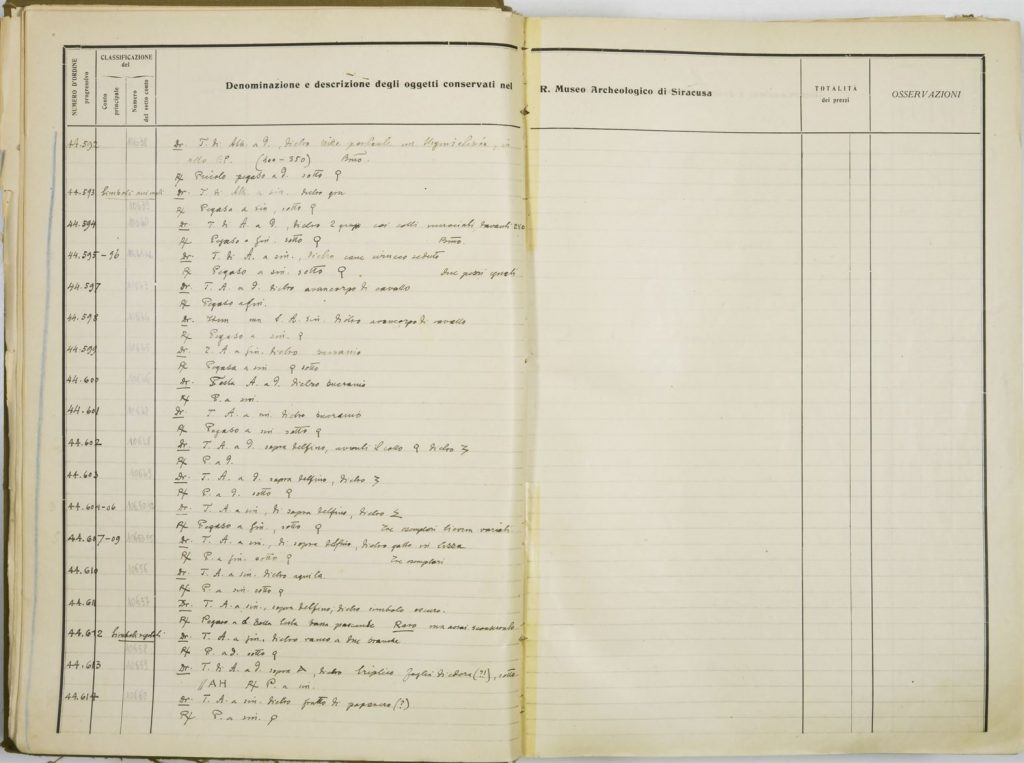 NUMERO D'ORDINE progressivo
CLASSIFICAZIONE del
Conto principale
Numero del sotto conto
Denominazione e descrizione degli oggetti conservati nel R. Museo Archeologico di Siracusa
TOTALITÀ dei prezzi
OSSERVAZIONI
44.592 Dr. T. di Ath. a d., dietro Nike portante un
alto (400-350) Bmo.
R/ Piccolo pegaso a d. sotto Ϙ
44.593 Simboli animali Dr. T. di Ath. a sin. dietro gru
R/ Pegaso a sin., sotto Ϙ
44.594 Dr. T. di A. a d., dietro 2 colli davanti
R/ Pegaso a sin. sotto Ϙ Bmo.
44.595-96 Dr. T. di A. a sin., dietro cane seduto
R/ Pegaso a sin. sotto Ϙ due pezzi uguali
44.597 Dr. T. A. a d. dietro avancorpo di cavallo
R/ Pegaso a sin.
44.598 Dr. Idem ma T. A. sin. dietro avancorpo di cavallo
R/ Pegaso a sin. Ϙ
44.599 Dr. T. A. a sin. dietro bucranio
R/ Pegaso a sin Ϙ sotto
44.600 Dr. Testa A. a d. dietro bucranio
R/ P. a sin.
44.601 Dr. T. A. a sin. dietro bucranio
R/ Pegaso a sin sotto Ϙ
44.602 Dr. T. A. a d. sopra delfino, avanti il collo Ϙ dietro
R/ P. a d.
44.603 Dr. T. A. a d. sopra delfino, dietro
R/ P. a d. sotto Ϙ
44.604-06 Dr. T. A. a sin., di sopra delfino, dietro Σ
R/ Pegaso a sin., sotto Ϙ Tre esemplari variati
44.607-09 Dr. T. A. a sin., di sopra delfino, dietro gallo in lizza
R/ P. a sin. sotto Ϙ Tre esemplari
44.610 Dr. T. A. a sin. dietro aquila
R/ P. a sin. sotto Ϙ
44.611 Dr. T. A. a sin., sopra delfino, dietro simbolo oscuro.
R/ Pegaso a d. dalla testa bassa pascente Raro ma assai sconservato
44.612 Simboli vegetali Dr. T. A. a sin. dietro ramo a due branche
R/ P. a d. sotto Ϙ
44.613 Dr. T. di A. a d. sopra A, dietro triplice foglia di edera (?!), sotto
AH R/ P. a sin.
44.614 Dr. T. A. a sin. dietro frutto di papavero (?)
R/ P. a sin. Ϙ